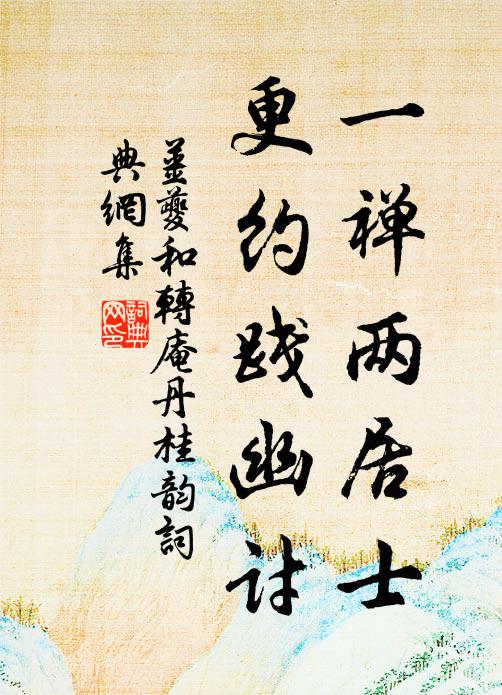 一禅两居士
更约践幽讨
姜夔和轉庵丹桂韵詞
典網集
詞典
网印